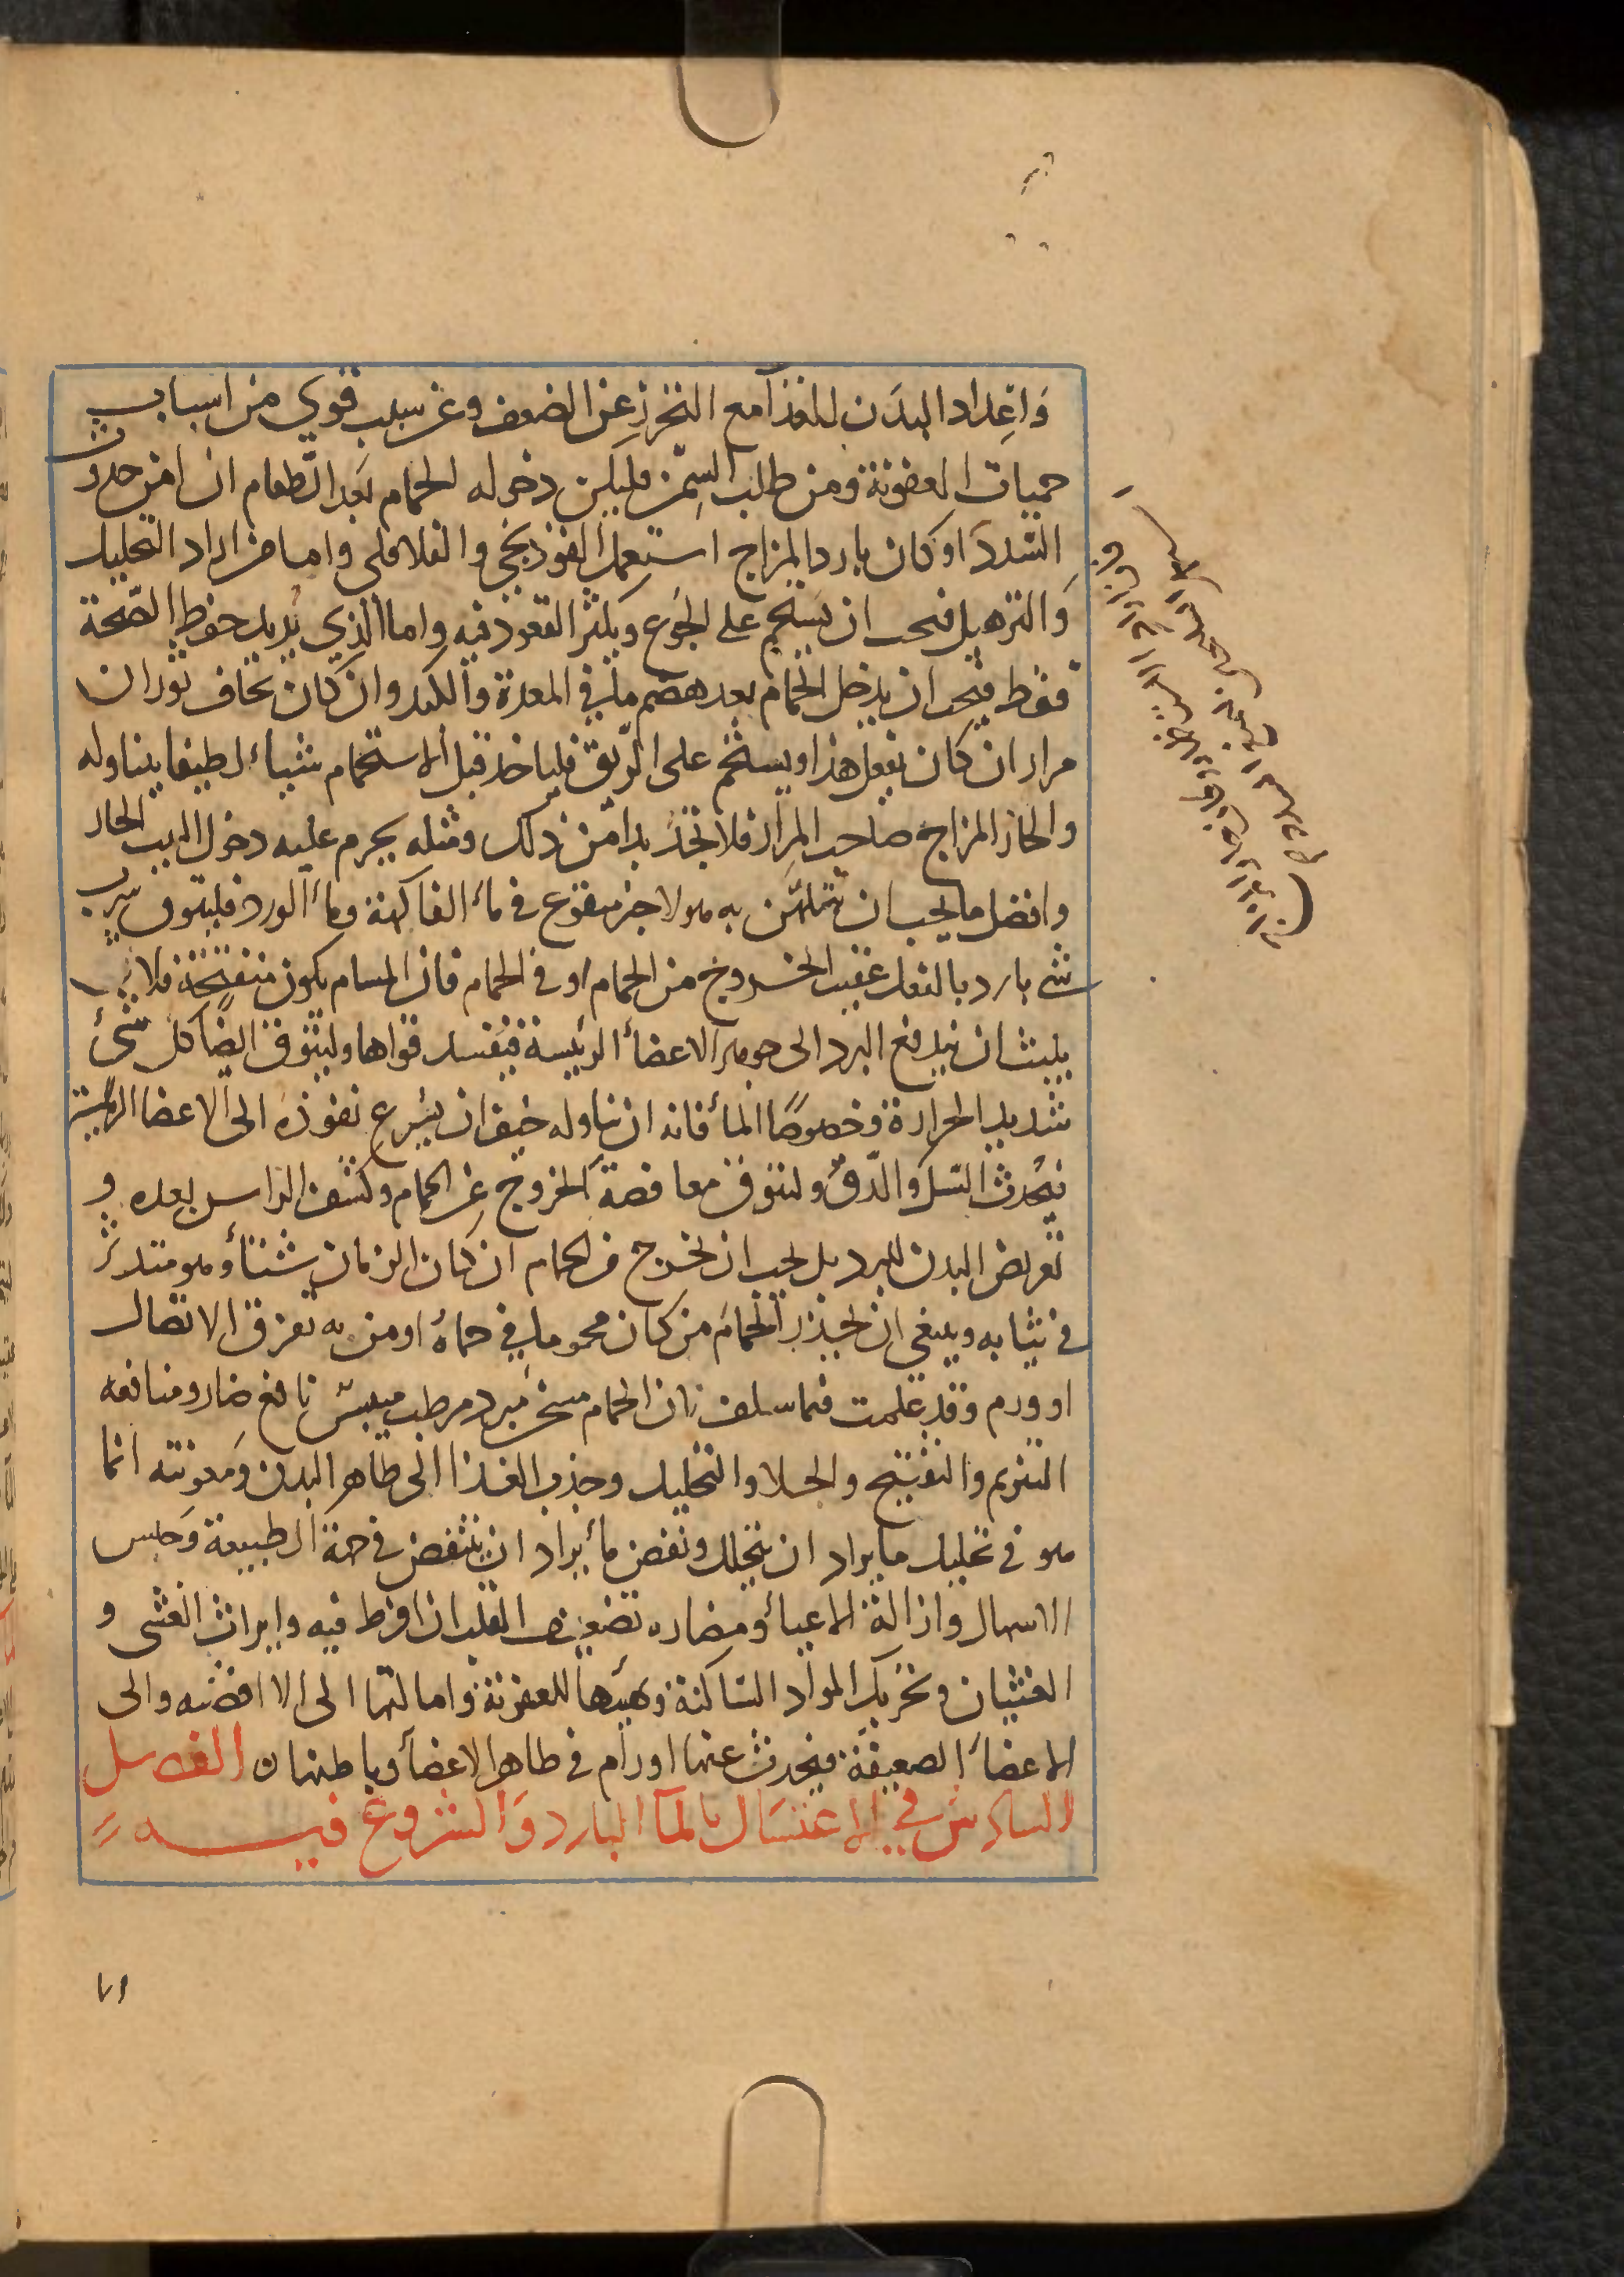 وَاعِداد البدَن للغذا مع التحرز عن الضعف وعن سبب قوي من اسباب
حميات العفونة ومن طلب السِمن فليكن دخوله الحمام بَعد الطعام ان امن حدوث
السّددَ او كان بارد المزاج استعمل الفوذنجي والفلافلى واما من اراد التحليل
وَالتزهيل فيجب ان يَستحم على الجوع ويكثر القعود فيه واما الذي يُريد حفظ الصّحة
فقط فيجب ان يدخل الحمام بعد هضم ما في المعدة والكبد وان كان يخاف ثوران
مرار ان كان يفعل هذا ويستحم على الرّيق فلياخذ قبل الاستحمام شيأ لطيفا يتناوله
والحار المزاج صاحب المِرار فلا يجدُ بدا من ذلك ومثله يحرم عليه دخول البيت الحار
وافضل ما يجب ان يتلهّن به هولا خبز منقوع في مأ الفاكهة ومأ الورد فليتوق شرب
شى بارد بالفعل عقيب الخروج من الحمام او في الحمام فان المسام يكون منفتحة فلا
يلبث ان يندفع البرد الى جوهر الاعضأ الرئيسة فيفسد قواها وليتوق ايضا كل شئ
شديد الحرارة وخصوصًا المأ فانه ان تناوله خيف ان يسرع نفوذه الى الاعضا الرئيسة
فيُحدث السّل والدّق وليتوق معافصة الخروج عن الحمام وكشف الراس بعده و
تعريض البدن للبرد بل يجب ان يخرج من الحمام ان كان الزمان شتأ وهو متدثر
في ثيابه وينبغي ان يحذر الحمامَ من كان محموما في حماهُ او من به تفرق الاتصال
او ورم وقد علمت فيما سلف ان الحمام مسخن مُبرد مرطب ميبس نافع ضار ومنافعه
التنويم والتفتيح والجلا والتحليل وجذب الغذا الى ظاهر البدن ومعونته انما
هو في تحليل ما يراد ان يتحلل ونفض ما يراد ان ينتفض في جهة الطبيعة وَحبس
الاسهال وازالة الاعيأ ومضاره تضعيف القلب ان افرط فيه وايراث الغشى و
الغثيان وتحريك المواد الساكنة وتهيئها للعفونة وامالتها الى الاافضيه والى
الاعضأ الضعيفة فيحدث عنها اورام في ظاهر الاعضأ وباطنها ن الفصل
السادس في الاغتسَال بالمآ البارد وَالشروع فيه
٧١